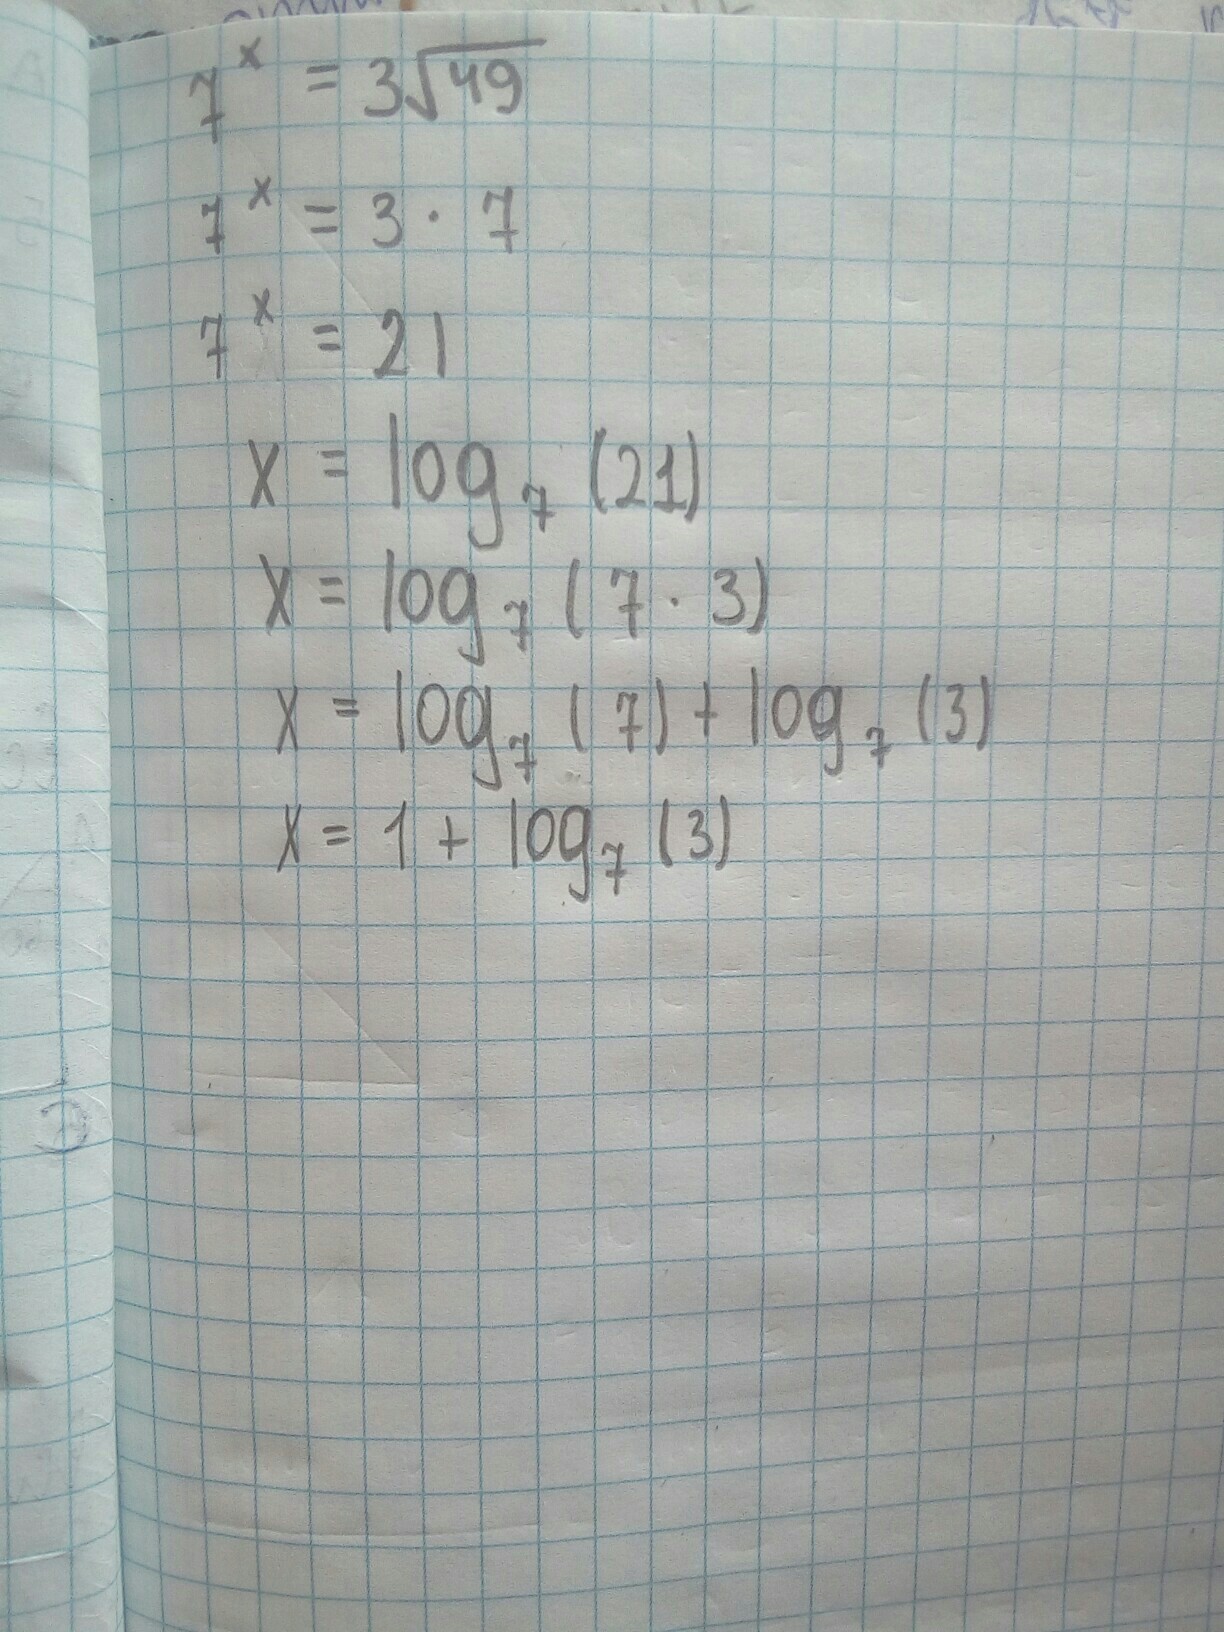 7^x = 3√49
7^x = 3 · 7
7^x = 21
x = log₇ (21)
x = log₇ (7 · 3)
x = log₇ (7) + log₇ (3)
x = 1 + log₇ (3)